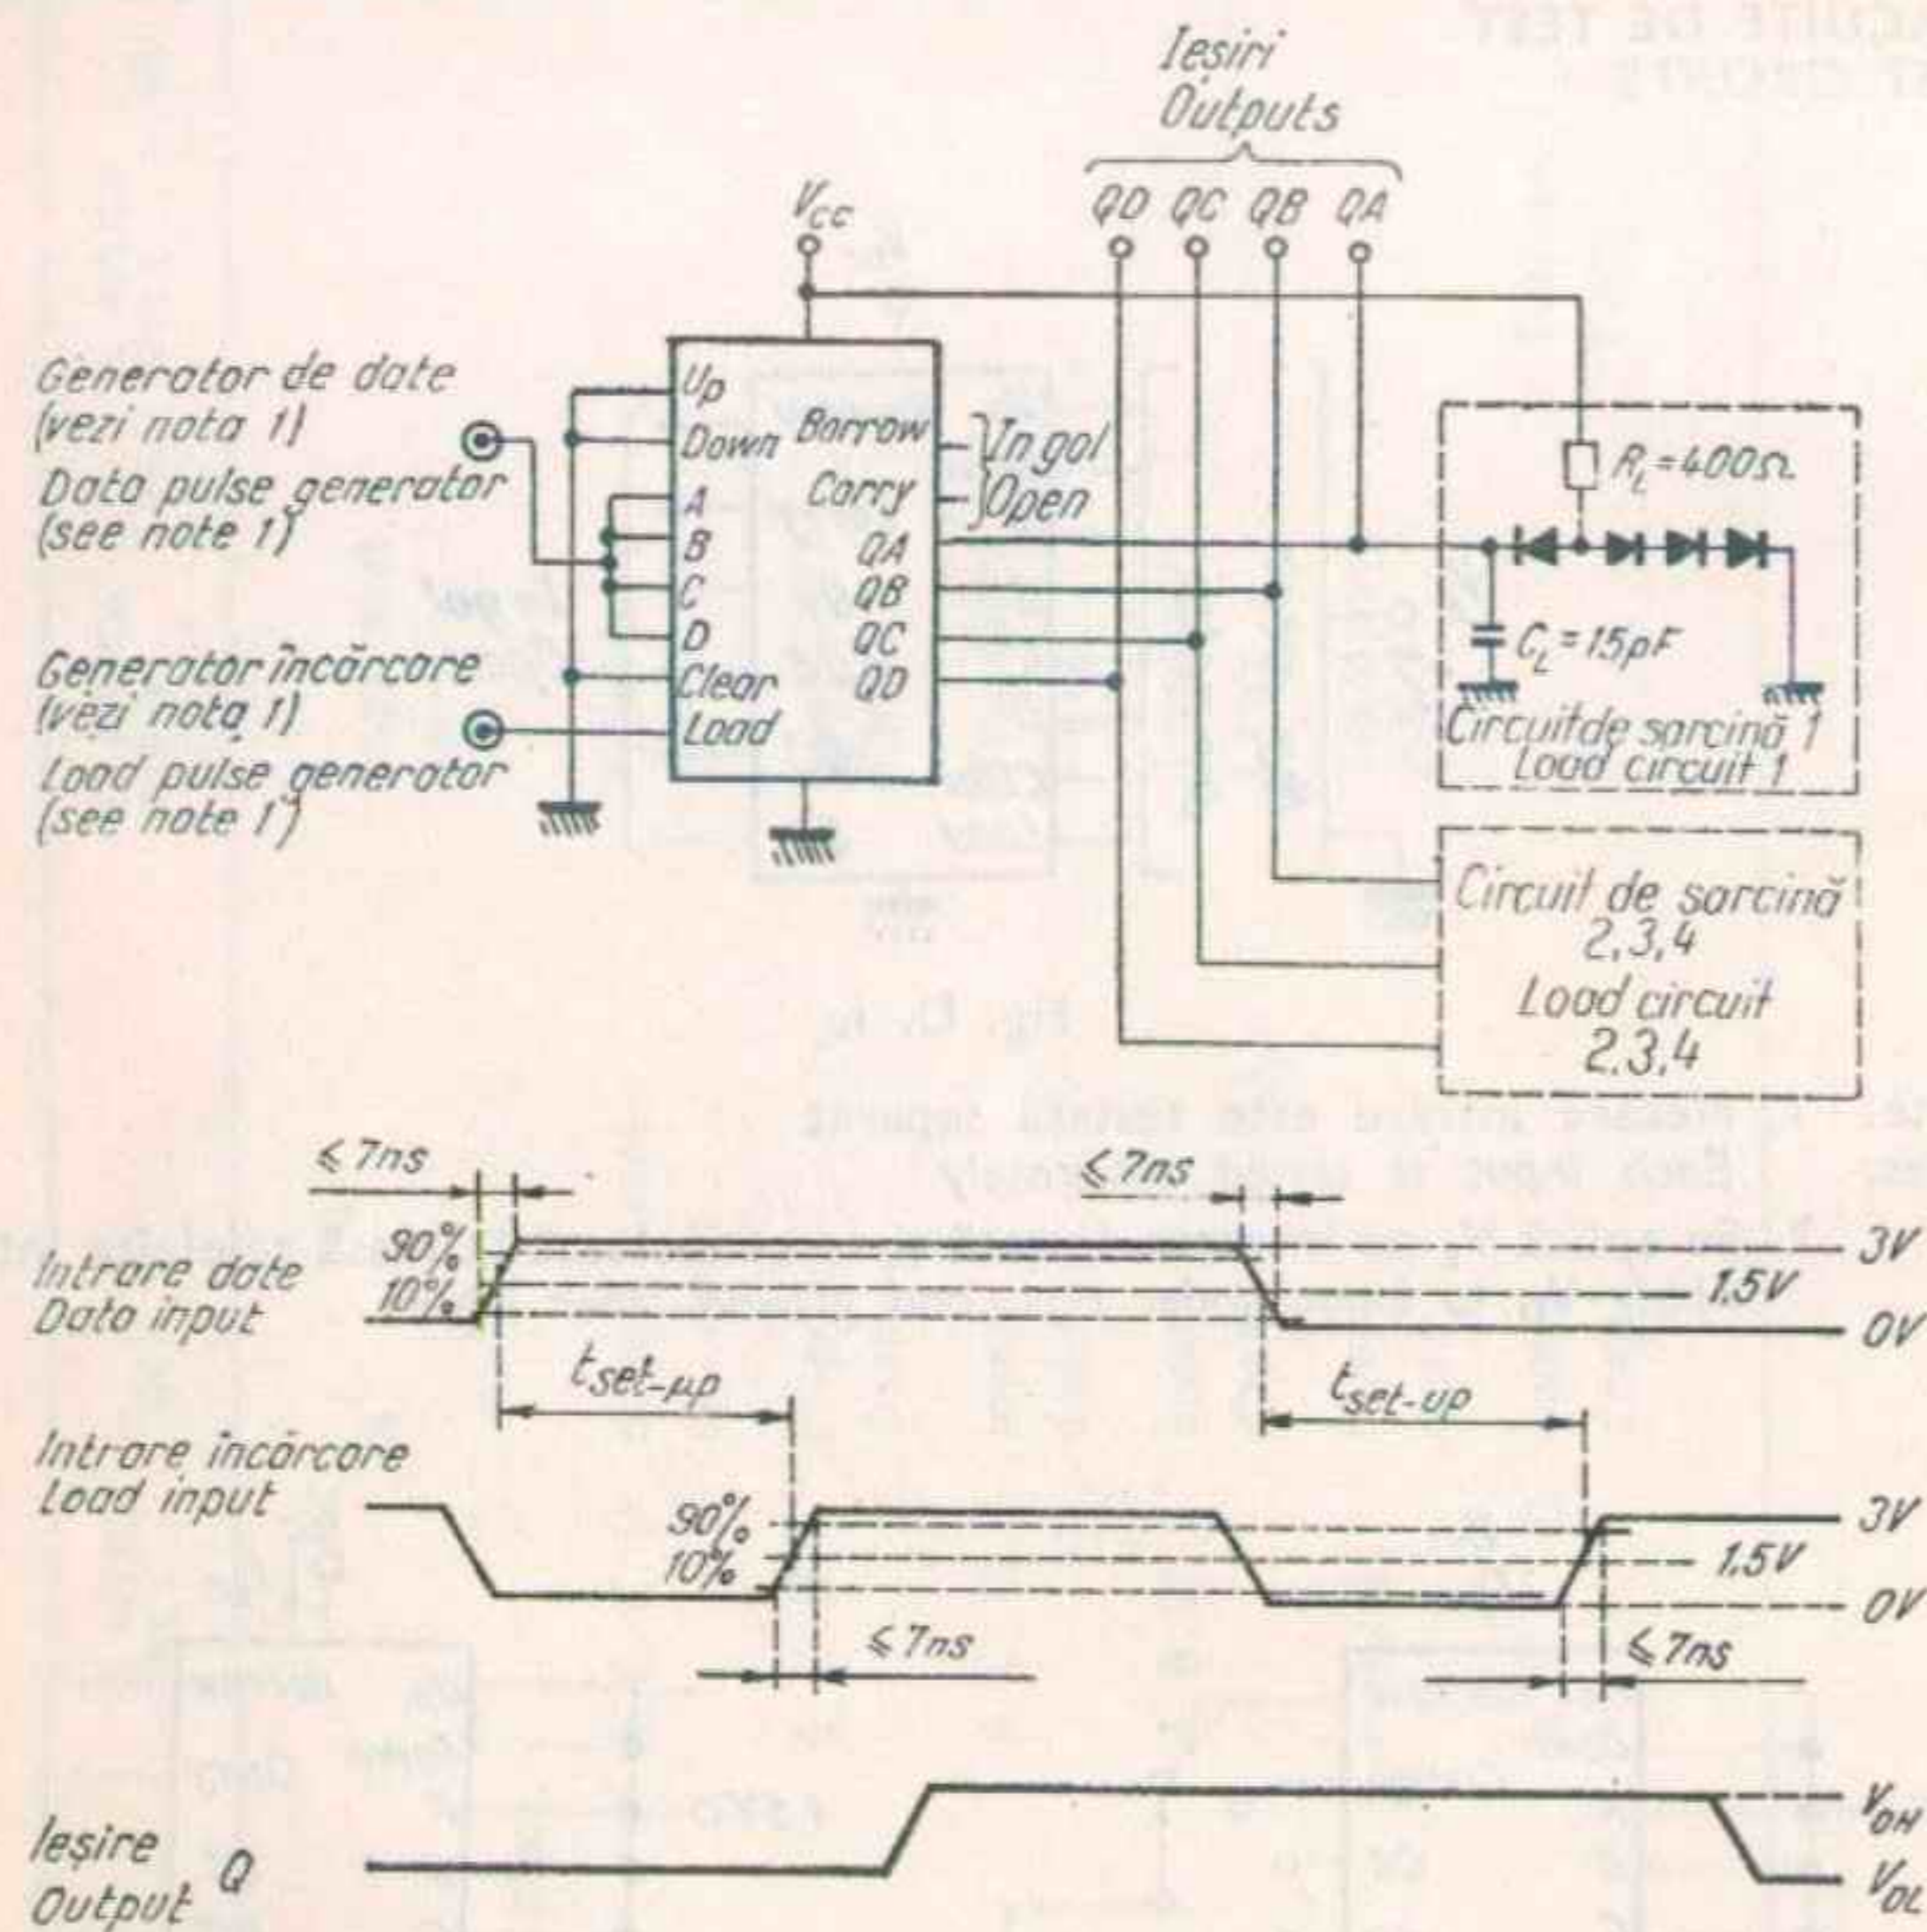 Ieșiri
Outputs
QD QC QB QA
Vcc
Generator de date
(vezi nota 1)
Data pulse generator
(see note 1)
Generator încărcare
(vezi nota 1)
Load pulse generator
(see note 1)
Up
Down
A
B
C
D
Clear
Load
Borrow
Carry
QA
QB
QC
QD
In gol
Open
RL=400Ω
CL=15pF
Circuit de sarcină 1
Load circuit 1
Circuit de sarcină
2,3,4
Load circuit
2,3,4
≤7ns
≤7ns
Intrare date
Data input
90%
10%
3V
1.5V
0V
tset-μp
tset-up
Intrare încărcare
Load input
90%
10%
3V
1.5V
0V
≤7ns
≤7ns
Ieșire
Output
Q
VOH
VOL